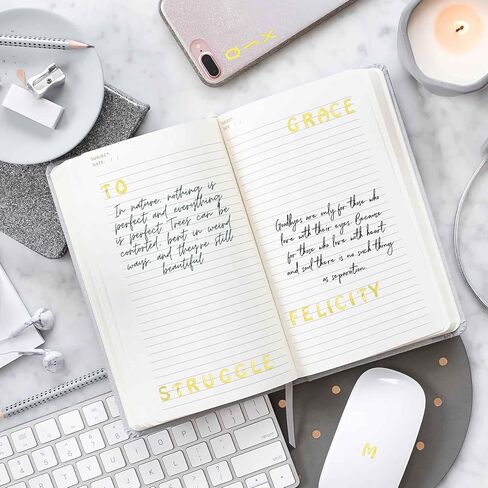 QIX
SUBJECT:
DATE: / /
TO
In nature, nothing is
perfect and everything
is perfect. Trees can be
contorted, bent in weird
ways, and they're still
beautiful
STRUGGLE
GRACE
Goodbyes are only for those who
love with their eyes. Because
for those who love with heart
and soul there is no such thing
as separation.
FELICITY
M